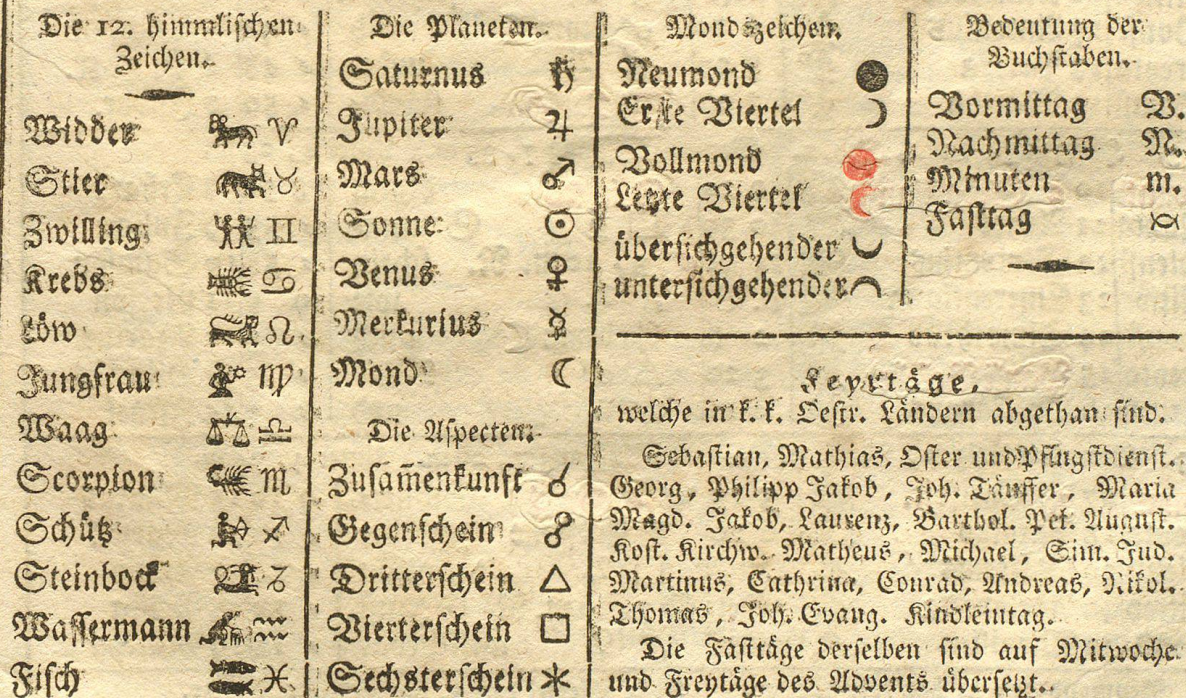 Die 12. himmlischen
Zeichen.
Widder ♈
Stier ♉
Zwilling ♊
Krebs ♋
Löw ♌
Jungfrau ♍
Waag ♎
Scorpion ♏
Schütz ♐
Steinbock ♑
Wassermann ♒
Fisch ♓
Die Planeten.
Saturnus ♄
Jupiter ♃
Mars ♂
Sonne ☉
Venus ♀
Merkurius ☿
Mond ☾
Die Aspecten.
Zusam̄enkunft ☌
Gegenschein ☍
Dritterschein △
Vierterschein □
Sechsterschein ⚹
Mondszeichen.
Neumond ●
Erste Viertel ☽
Vollmond
Letzte Viertel ☾
übersichgehender
untersichgehender
Bedeutung der
Buchstaben.
Vormittag V.
Nachmittag N.
Minuten m.
Fasttag
Feyrtäge,
welche in k. k. Oestr. Ländern abgethan sind.
Sebastian, Mathias, Oster und Pfingstdienst.
Georg, Philipp Jakob, Joh. Täuffer, Maria
Magd. Jakob, Laurenz, Barthol. Pet. August.
Kost. Kirchw. Matheus, Michael, Sim. Jud.
Martinus, Cathrina, Conrad, Andreas, Nikol.
Thomas, Joh. Evang. Kindleintag.
Die Fasttäge derselben sind auf Mitwoche
und Freytäge des Advents übersetzt.